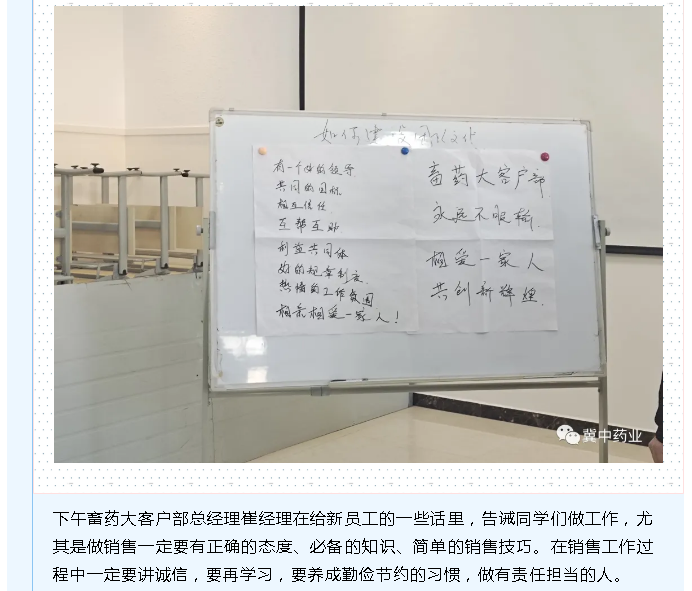 如何建设团队文化
有一个好的领导
共同的目标
相互信任
互帮互助
利益共同体
好的规章制度.
热情的工作氛围
相亲相爱一家人！
畜药大客户部
永远不服输.
相爱一家人
共创新辉煌
冀中药业
下午畜药大客户部总经理崔经理在给新员工的一些话里，告诫同学们做工作，尤
其是做销售一定要有正确的态度、必备的知识、简单的销售技巧。在销售工作过
程中一定要讲诚信，要再学习，要养成勤俭节约的习惯，做有责任担当的人。